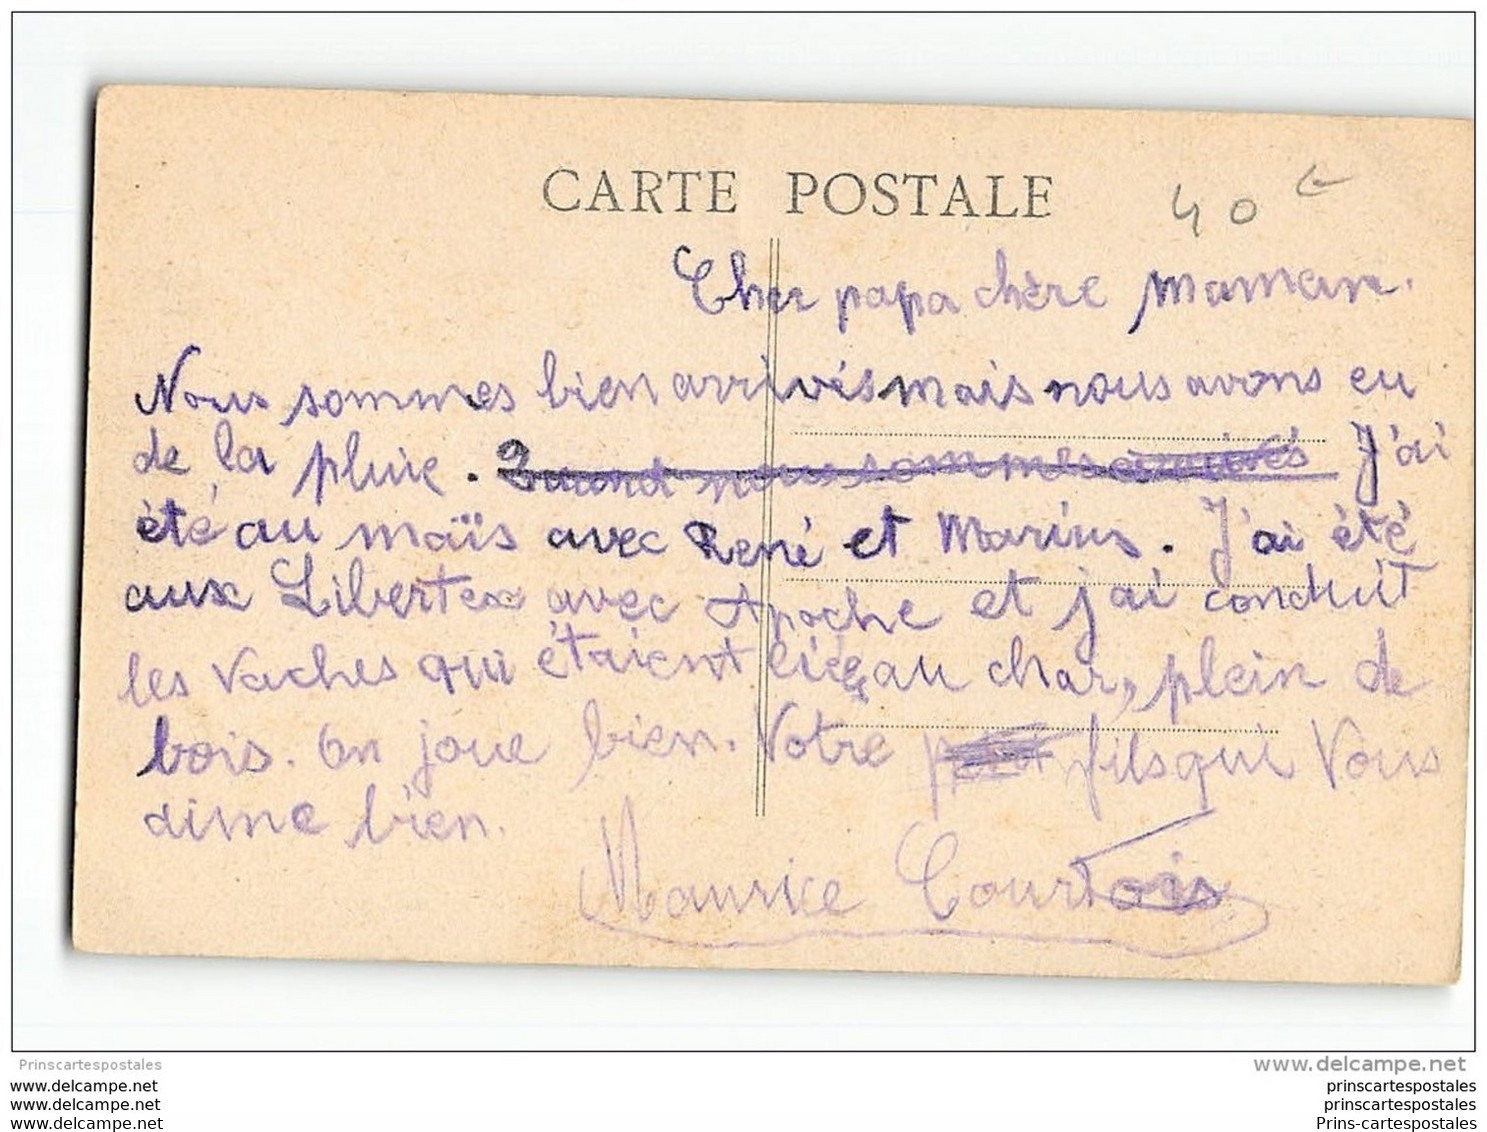 CARTE POSTALE
40 €
Cher papa chère maman.
Nous sommes bien arrivés mais nous avons eu
de la pluie. Quand nous sommes arrivés J'ai
été au maïs avec René et Marius. J'ai été
aux Libertes avec Apoche et j'ai conduit
les vaches qui étaient liées au char, plein de
bois. On joue bien. Votre fils qui vous
aime bien.
Maurice Courtois
Prinscartespostales
www.delcampe.net
www.delcampe.net
www.delcampe.net
www.delcampe.net
prinscartespostales
prinscartespostales
Prins-cartespostales